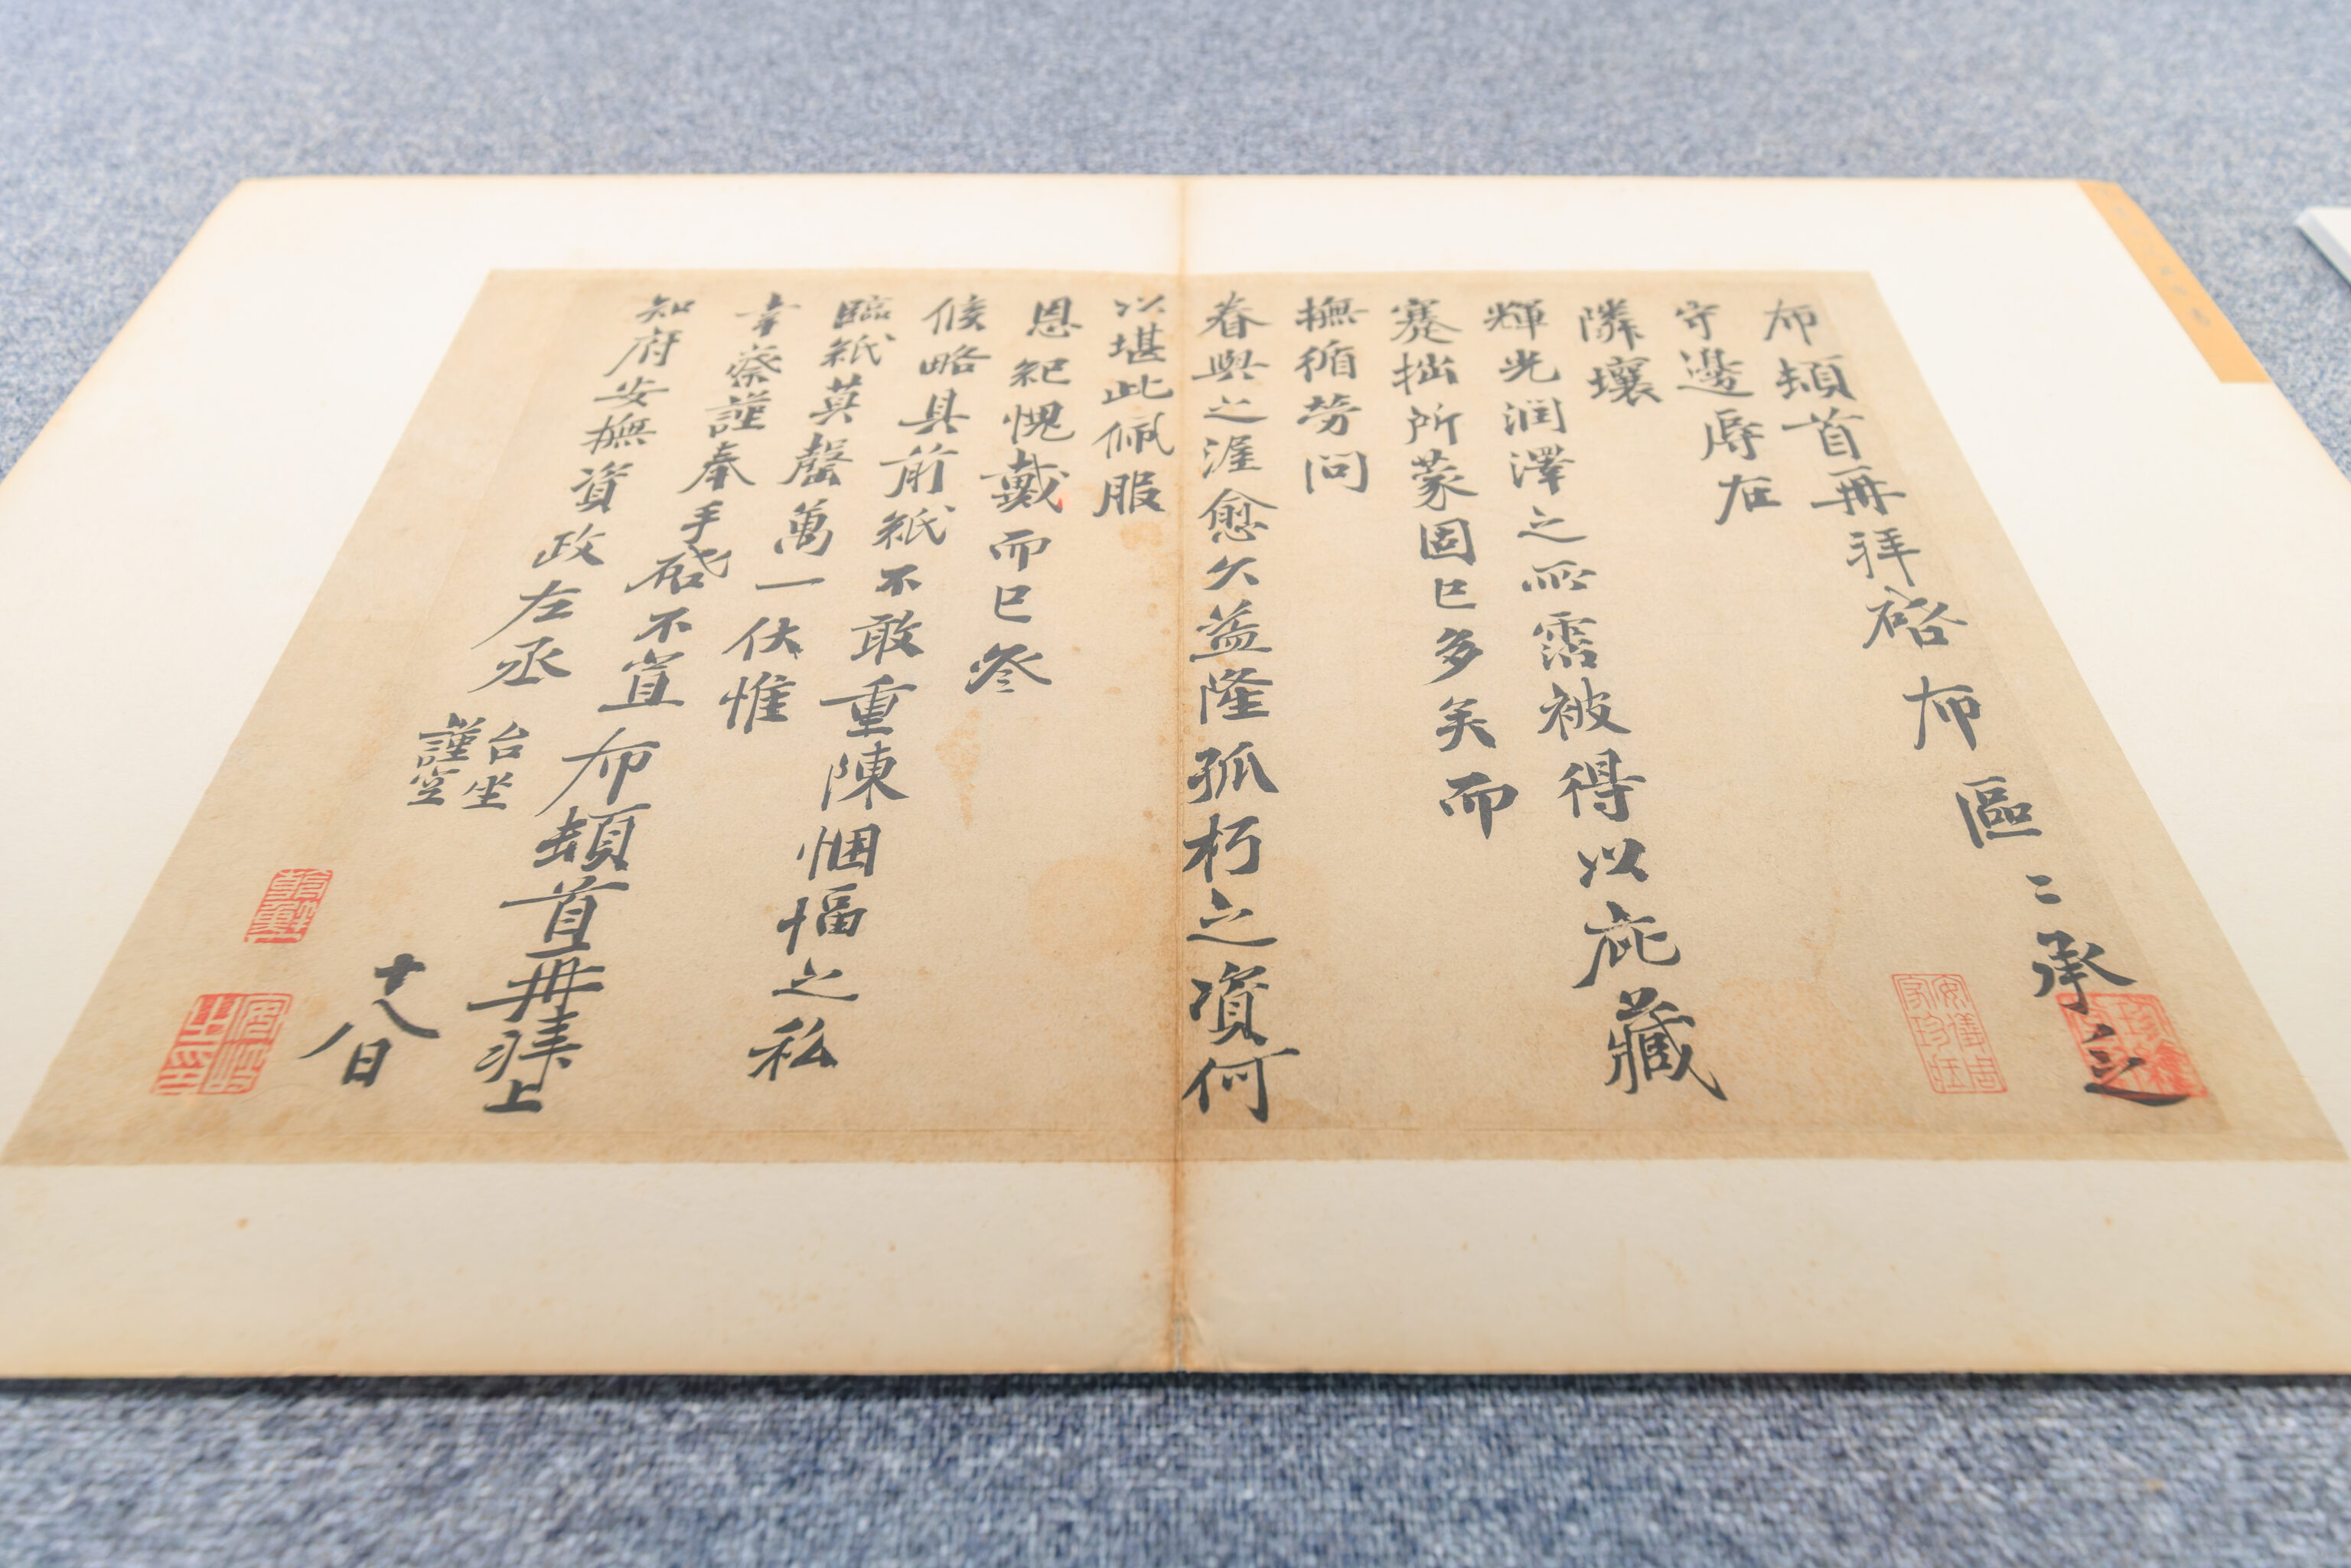 布頓首再拜啓布區二承乏
守邊辱在
隣壤
輝光潤澤之所霑被得以庇藏
蹇拙所蒙固已多矣而
撫循勞問
眷與之渥愈久益隆孤朽之資何
以堪此佩服
恩紀愧戴而已參
候略具前紙不敢重陳悃愊之私
臨紙莫罄萬一伏惟
幸察謹奉手啓不宣布頓首再拜上
知府安撫資政左丞
台坐
謹空
十八日
安儀周家珍藏